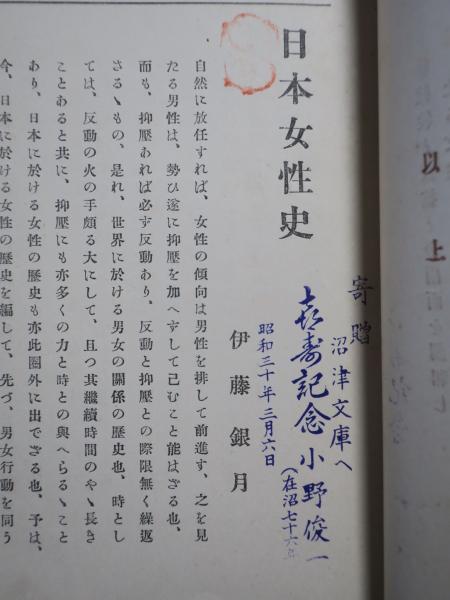 以上
寄贈
沼津文庫へ
喜寿記念 小野俊一
(在沼七十六年
昭和三十年三月六日
日本女性史
伊藤銀月
自然に放任すれば、女性の傾向は男性を排して前進す、之を見
たる男性は、勢ひ遂に抑壓を加へずして已むこと能はざる也、
而も、抑壓あれば必ず反動あり、反動と抑壓との際限無く繰返
さるゝもの、是れ、世界に於ける男女の關係の歴史也、時とし
ては、反動の火の手頗る大にして、且つ其繼續時間のやゝ長き
ことあると共に、抑壓にも亦多くの力と時との與へらるゝこと
あり、日本に於ける女性の歴史も亦此圈外に出でざる也、予は、
今、日本に於ける女性の歴史を編して、先づ、男女行動を同う